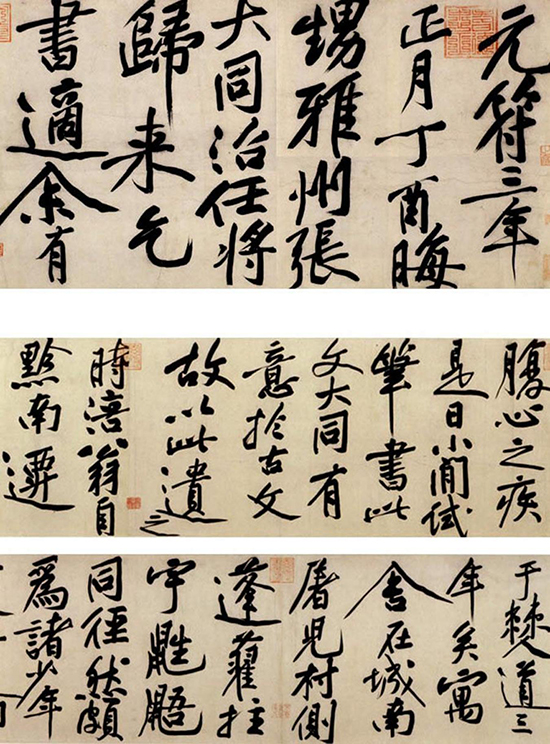 元符三年
正月丁酉晦
甥雅州張
大同治任將
歸来乞
書適余有
腹心之疾
是日小閒試
筆書此
文大同有
意於古文
故以此遺之
時涪翁自
黔南遷
于僰道三
年矣寓
舍在城南
屠兒村側
蓬藋拄
宇鼪鼯
同徑然頗
為諸少年